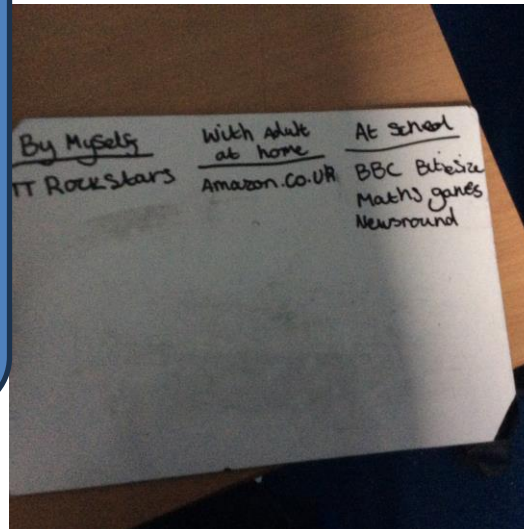 By Myself
TT Rockstars
With Adult
at home
Amazon.co.uk
At School
BBC Bitesize
Maths games
Newsround